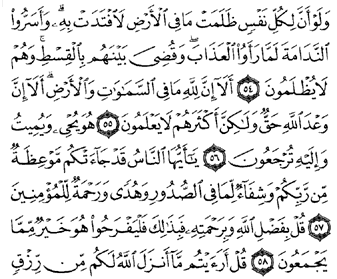 وَلَوْ أَنَّ لِكُلِّ نَفْسٍ ظَلَمَتْ مَا فِي ٱلْأَرْضِ لَٱفْتَدَتْ بِهِۦ ۗ وَأَسَرُّوا۟
ٱلنَّدَامَةَ لَمَّا رَأَوُا۟ ٱلْعَذَابَ ۖ وَقُضِىَ بَيْنَهُم بِٱلْقِسْطِ ۚ وَهُمْ
لَا يُظْلَمُونَ ٥٤ أَلَآ إِنَّ لِلَّهِ مَا فِى ٱلسَّمَٰوَٰتِ وَٱلْأَرْضِ ۗ أَلَآ إِنَّ
وَعْدَ ٱللَّهِ حَقٌّ وَلَٰكِنَّ أَكْثَرَهُمْ لَا يَعْلَمُونَ ٥٥ هُوَ يُحْىِۦ وَيُمِيتُ
وَإِلَيْهِ تُرْجَعُونَ ٥٦ يَٰٓأَيُّهَا ٱلنَّاسُ قَدْ جَآءَتْكُم مَّوْعِظَةٌ
مِّن رَّبِّكُمْ وَشِفَآءٌ لِّمَا فِى ٱلصُّدُورِ وَهُدًى وَرَحْمَةٌ لِّلْمُؤْمِنِينَ
٥٧ قُلْ بِفَضْلِ ٱللَّهِ وَبِرَحْمَتِهِۦ فَبِذَٰلِكَ فَلْيَفْرَحُوا۟ هُوَ خَيْرٌ مِّمَّا
يَجْمَعُونَ ٥٨ قُلْ أَرَءَيْتُم مَّآ أَنزَلَ ٱللَّهُ لَكُم مِّن رِّزْقٍ